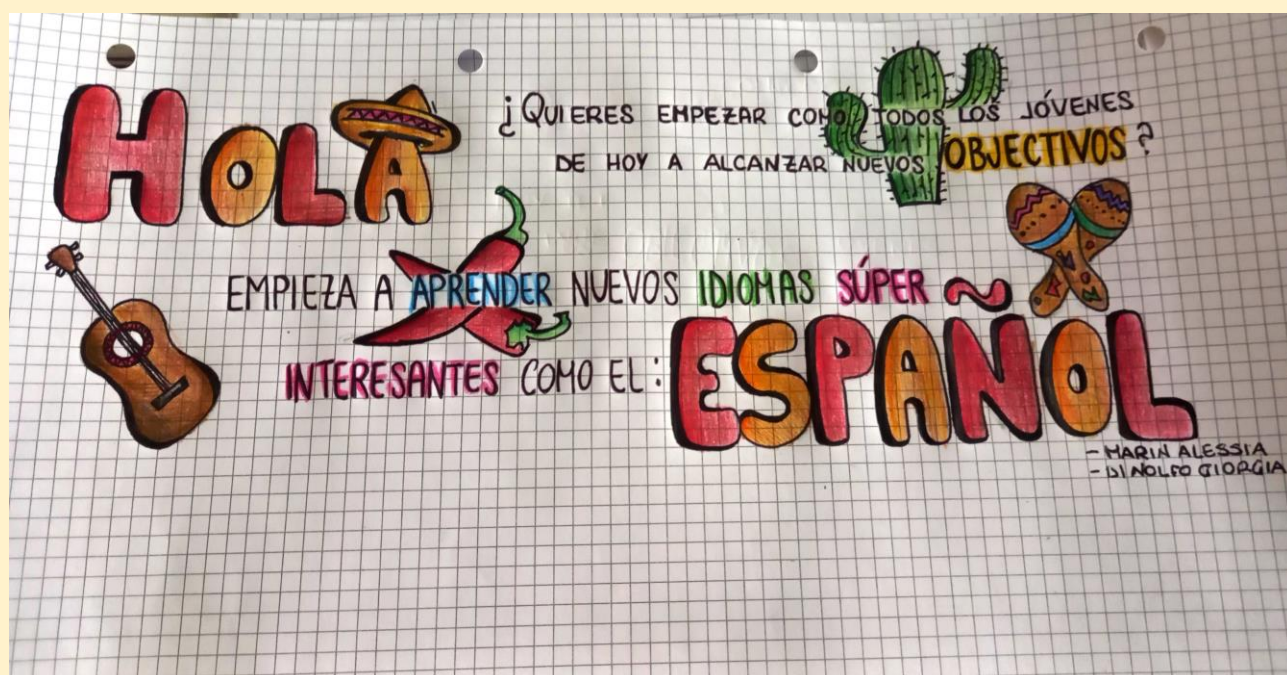 HOLA
¿QUIERES EMPEZAR COMO TODOS LOS JÓVENES
DE HOY A ALCANZAR NUEVOS OBJECTIVOS?
EMPIEZA A APRENDER NUEVOS IDIOMAS SÚPER
INTERESANTES COMO EL: ESPAÑOL
- MARIN ALESSIA
- DI NOLFO GIORGIA